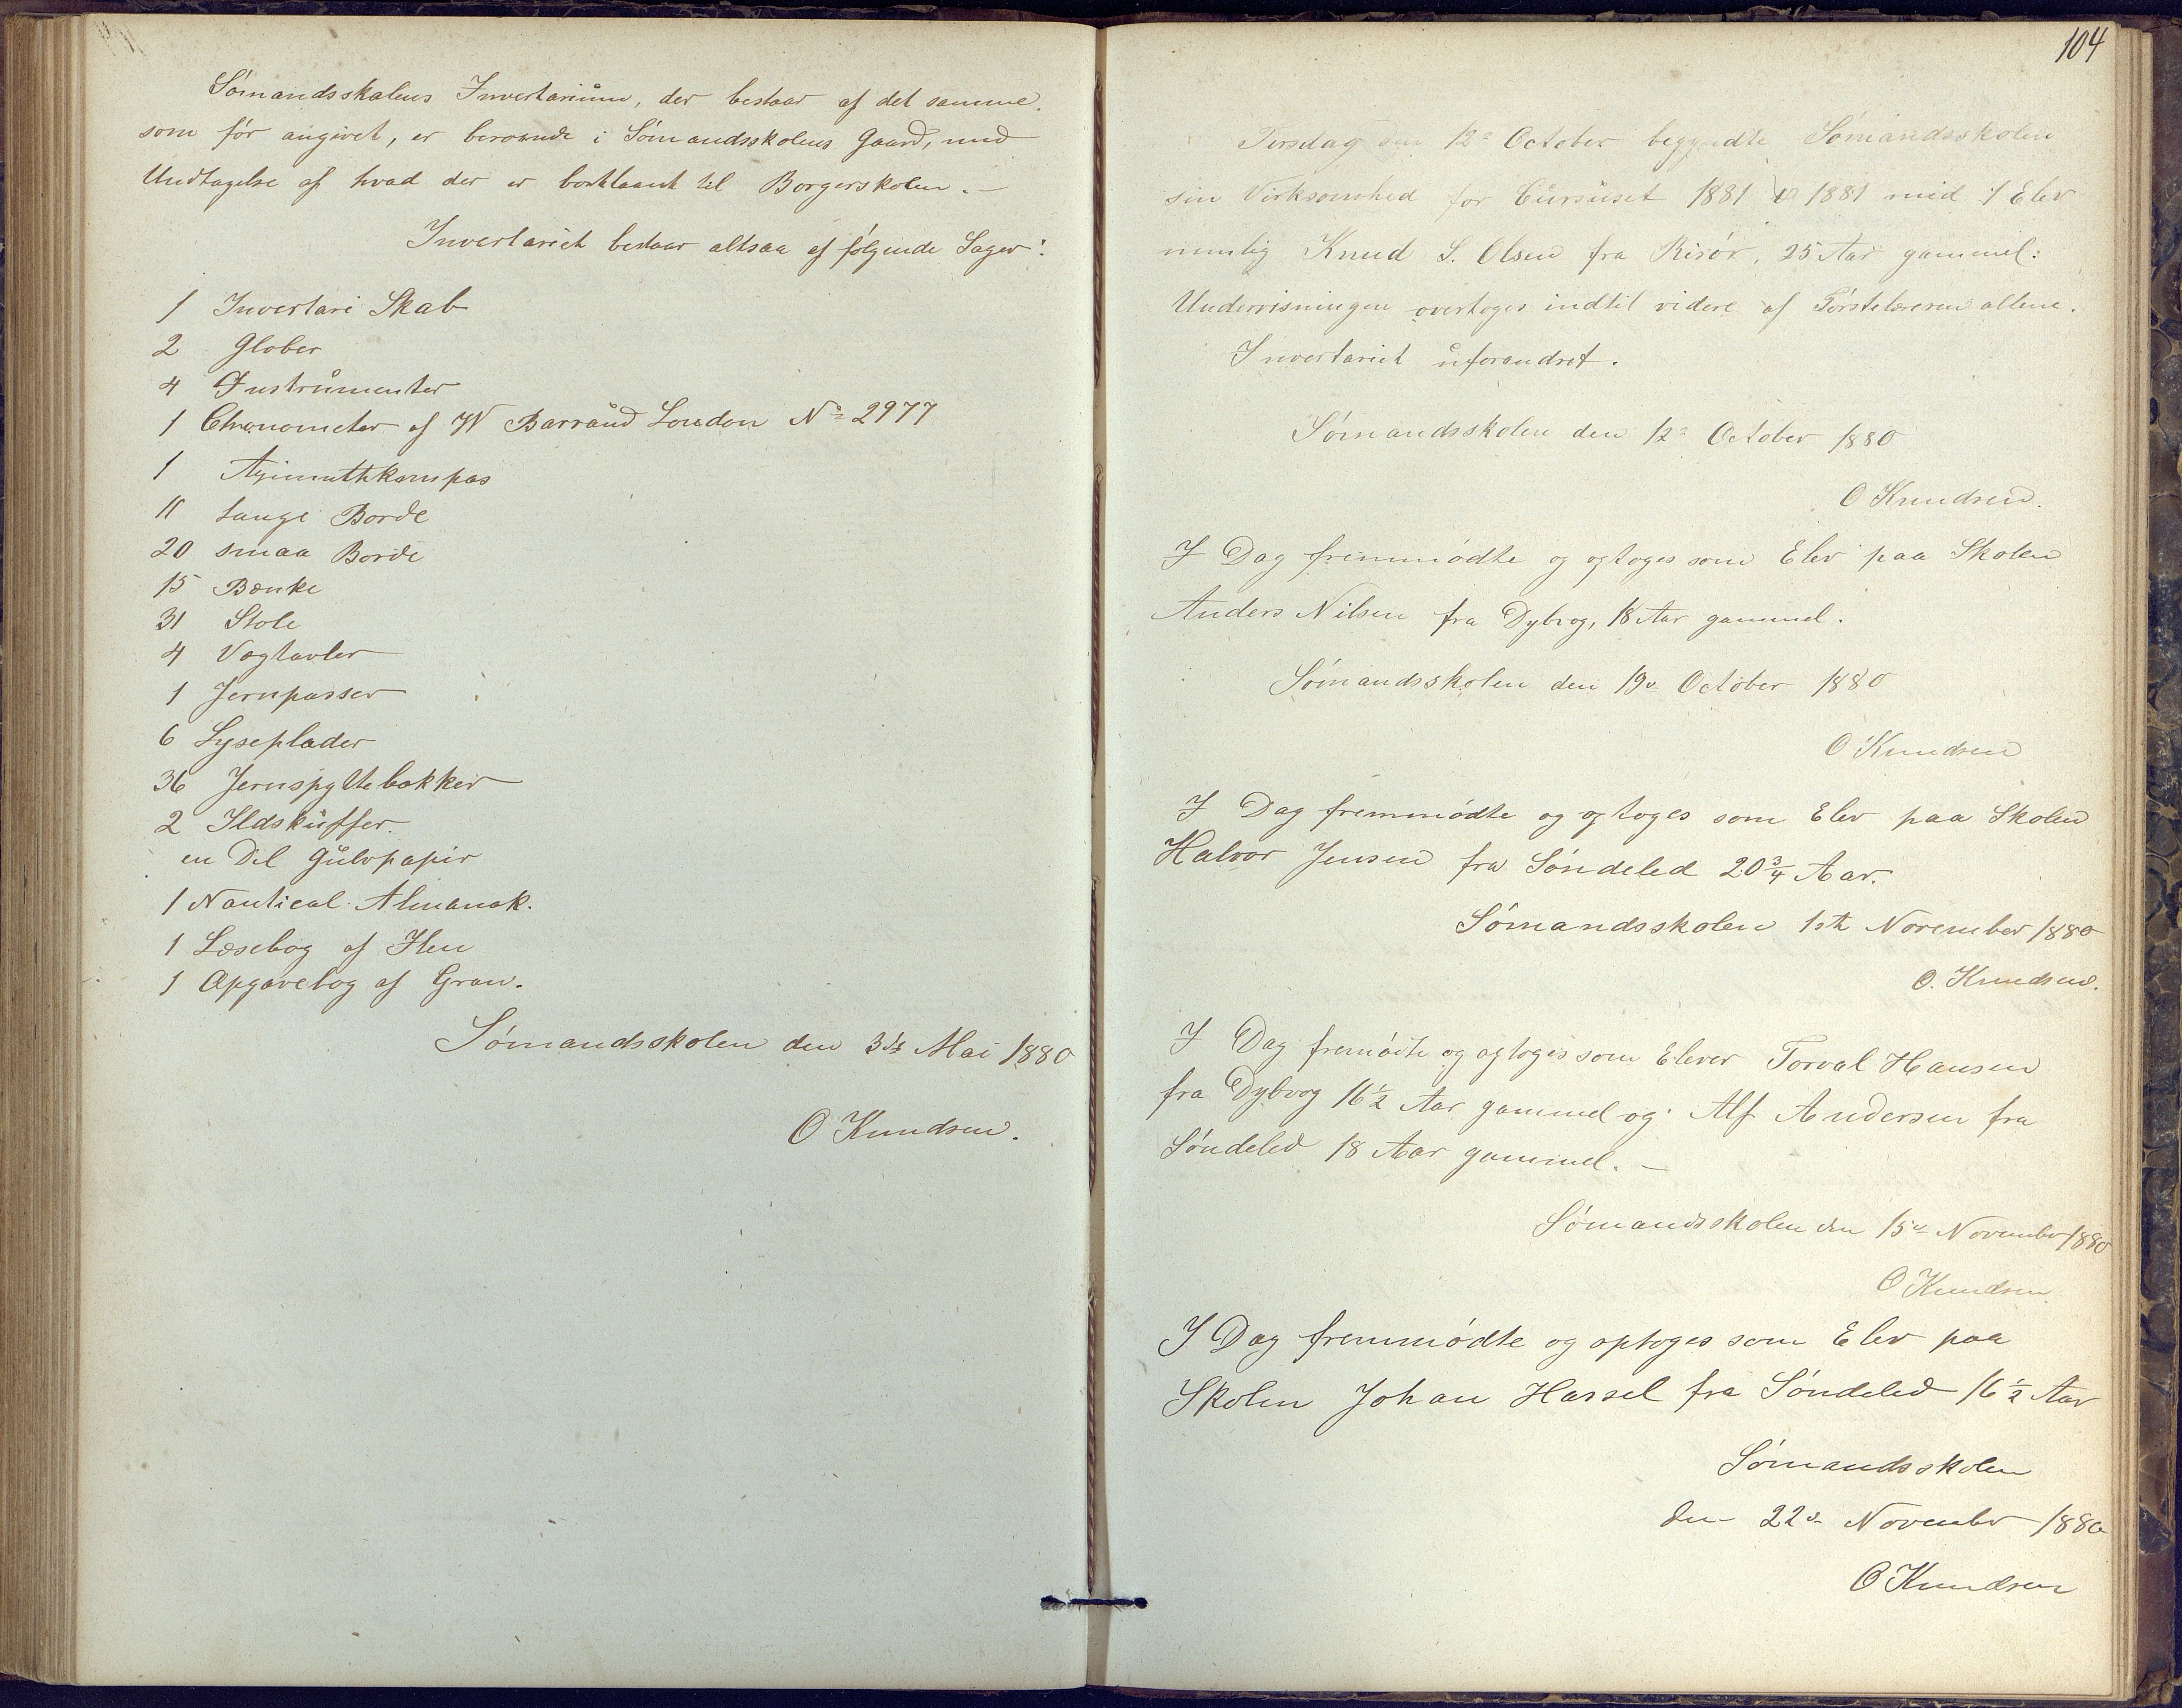 Sømandsskolens Inventarium, der bestaar af det samme
som før angivet, er beroende i Sømandsskolens Gaard, med
Undtagelse af hvad der er bortlaant til Borgerskolen. —
Inventariet bestaar altsaa af følgende Sager:
1 Inventari Skab
2 Glober
4 Instrumenter
1 Chronometer af W Barraud London No 2977
1 Azimuthkompas
11 Lange Borde
20 smaa Borde
15 Bænke
31 Stole
4 Vægtavler
1 Jernpasser
6 Lyseplader
36 Jernspyttebakker
2 Ildskuffer.
en Del Gulvpapir
1 Nautical Almanak.
1 Læsebog af Jen
1 Opgavebog af Gran.
Sømandsskolen den 3die Mai 1880
O Knudsen.
104
Tirsdag den 12e October begyndte Sømandsskolen
sin Virksomhed for Cursuset 1881 1881 med 1 Elev
nemlig Knud S. Olsen fra Risør, 25 Aar gammel:
Undervisningen overtoges indtil videre af Førstelæreren allene.
Inventariet uforandret.
Sømandsskolen den 12e October 1880
O Knudsen.
I Dag fremmødte og optoges som Elev paa Skolen
Anders Nilsen fra Dybvog, 18 Aar gammel.
Sømandsskolen den 19de October 1880
O Knudsen
I Dag fremmødte og optoges som Elev paa Skolen
Halvor Jensen fra Søndeled 20 3/4 Aar.
Sømandsskolen 1ste November 1880
O. Knudsen.
I Dag fremødte og optoges som Elever Torval Hansen
fra Dybvog 16 1/2 Aar gammel og Alf Andersen fra
Søndeled 18 Aar gammel. —
Sømandsskolen den 15de November 1880
O Knudsen
I Dag fremmødte og optoges som Elev paa
Skolen Johan Hassel fra Søndeled 16 1/2 Aar
Sømandsskolen
den 22de November 1880
O Knudsen